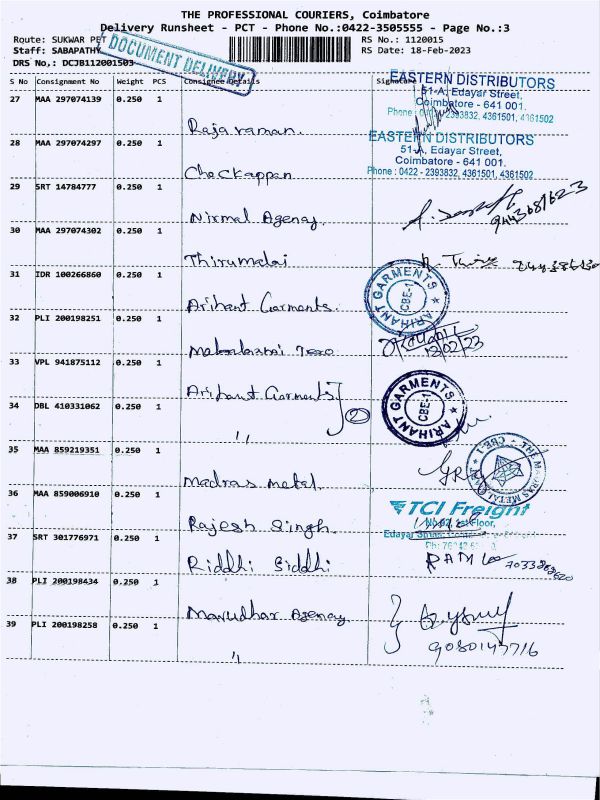 THE PROFESSIONAL COURIERS, Coimbatore
Delivery Runsheet - PCT - Phone No.:0422-3505555 - Page No.:3
Route: SUKWAR PET
RS No.: 1120015
Staff: SABAPATHY
RS Date: 18-Feb-2023
DRS No,: DCJB112001503
DOCUMENT DELIVERY
S No Consignment No Weight PCS Consignee Details Signature
27 MAA 297074139 0.250 1
Rajaraman.
EASTERN DISTRIBUTORS
51-A, Edayar Street,
Coimbatore - 641 001.
Phone : 0422 - 2393832, 4361501, 4361502
28 MAA 297074297 0.250 1
Chockappan
EASTERN DISTRIBUTORS
51-A, Edayar Street,
Coimbatore - 641 001.
Phone : 0422 - 2393832, 4361501, 4361502
29 SRT 14784777 0.250 1
Nirmal Agenay.
30 MAA 297074302 0.250 1
Thirumalai
31 IDR 100266860 0.250 1
Arihant Garments.
ARIHANT GARMENTS
CBE-1
32 PLI 200198251 0.250 1
18/02/23
33 VPL 941875112 0.250 1
Arihant Garments
2
ARIHANT GARMENTS
CBE-1
34 DBL 410331062 0.250 1
"
35 MAA 859219351 0.250 1
Madras metal.
36 MAA 859006910 0.250 1
Rajesh Singh.
TCI Freight
1st Floor,
Edayar
37 SRT 301776971 0.250 1
Riddhi Siddhi
RAM
38 PLI 200198434 0.250 1
Marudhar Agenay
9080147716
39 PLI 200198258 0.250 1
"